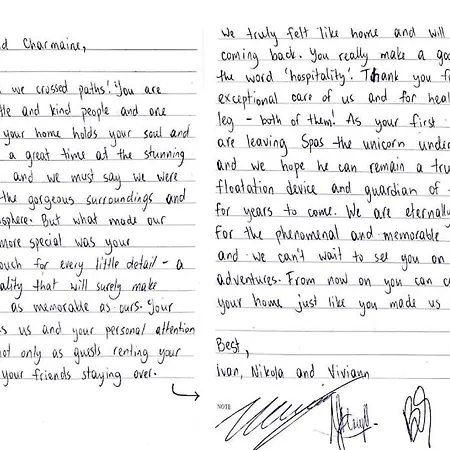 d Charmaine,
we crossed paths! You are
tle and kind people and one
your home holds your soul and
a great time at the stunning
and we must say we were
the gorgeous surroundings and
sphere. But what made our
more special was your
ouch for every little detail - a
ality that will surely make
as memorable as ours. Your
s us and your personal attention
not only as guests renting your
your friends staying over.
We truly felt like home and will
coming back. You really make a goo
the word 'hospitality'. Thank you f
exceptional care of us and for heal
leg - both of them! As your first
are leaving Spas the unicorn under
and we hope he can remain a tru
floatation device and guardian of
for years to come. We are eternally
for the phenomenal and memorable
and we can't wait to see you on
adventures. From now on you can c
your home just like you made us
Best,
ivan, Nikola and Viviann
NOTE